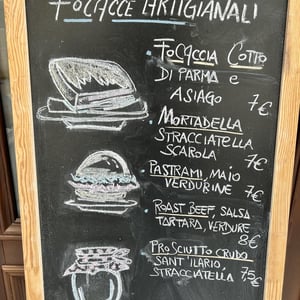 FOCACCE ARTIGIANALI
• FOCACCIA COTTO
DI PARMA e
ASIAGO 7€
• MORTADELLA
STRACCIATELLA
SCAROLA 7€
PASTRAMI, MAIO
VERDURINE 7€
ROAST BEEF, SALSA
TARTARA, VERDURE
8€
PROSCIUTTO CRUDO
SANT'ILARIO,
STRACCIATELLA 7,5€